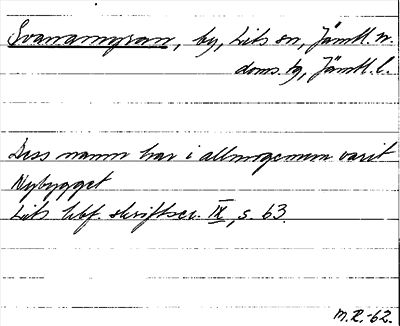 Svanamyran, by, Lits sn, Jämtl. n.
doms. tg, Jämtl. l.
Dess namn har i allmogemun varit
Nybygget
Lits hbf. skriftser. IX, s. 63.
M.R.-62.